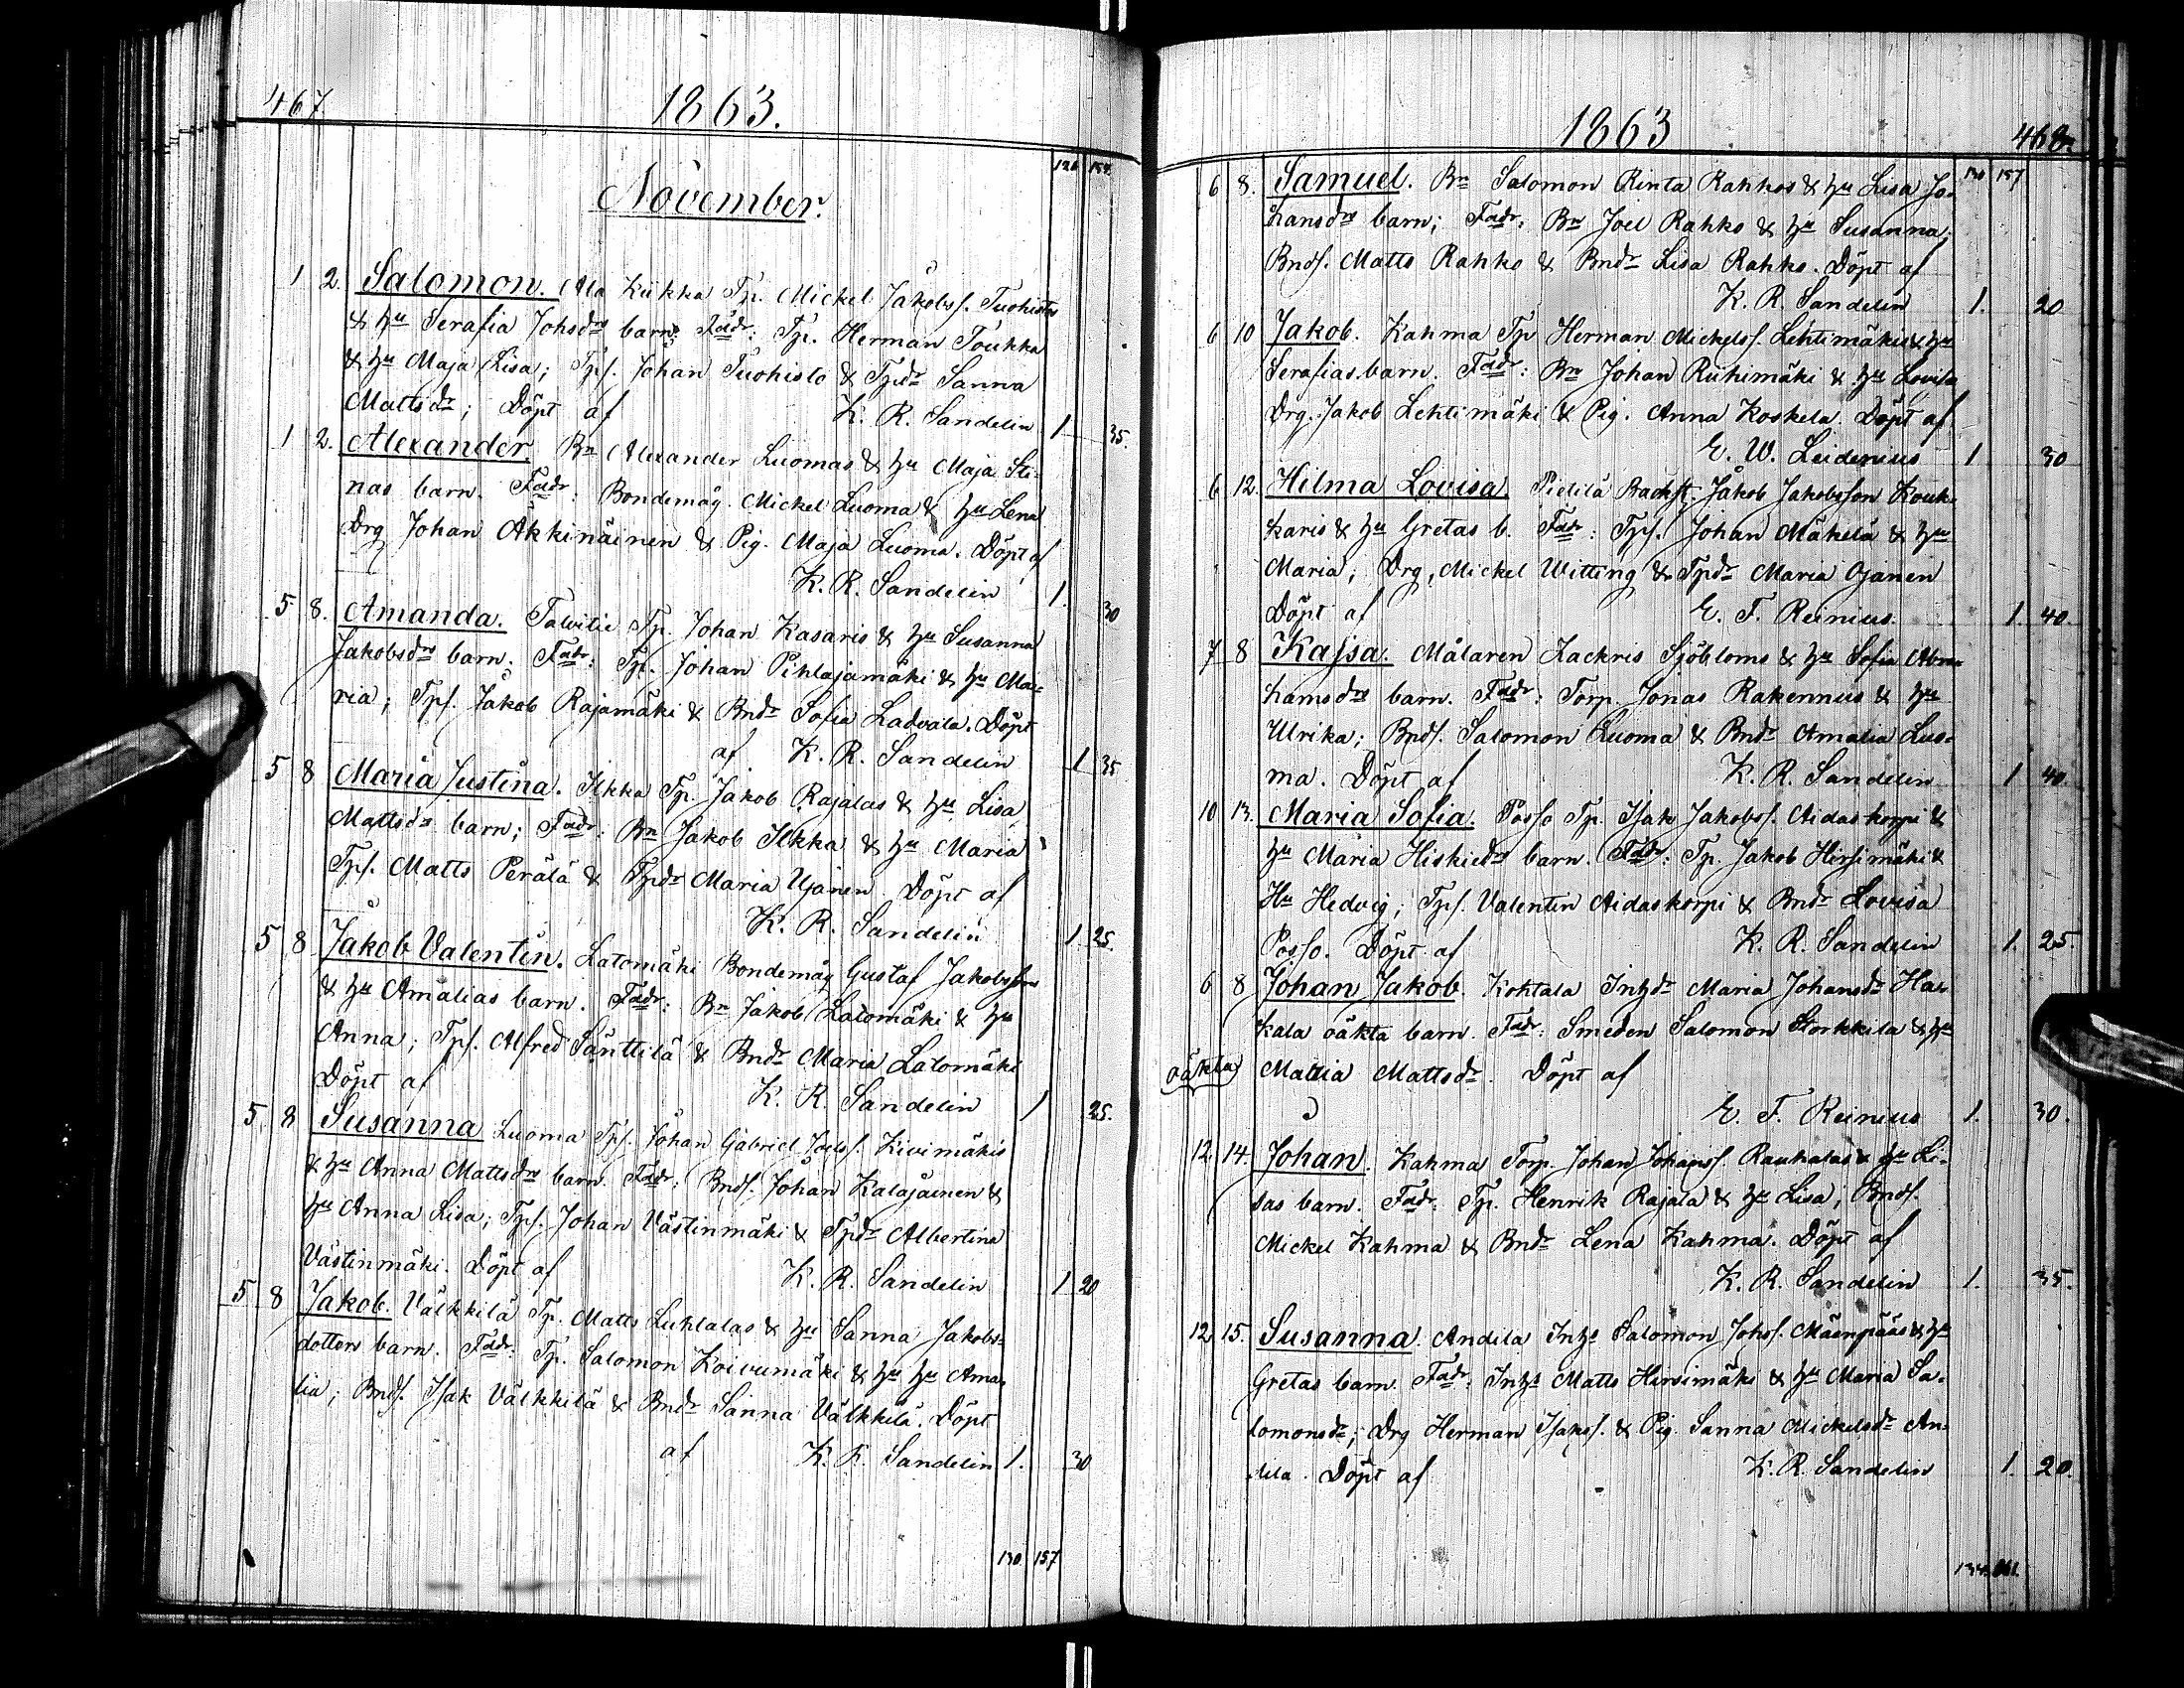 467
1863.
November.
126 154.
1 2. Salomon. Ala Kükka Tp. Mickel Jakobss. Tuohistos
& hu Serafia Johsdrs barn; Fadr: Tp. Herman Toukka
& hu Maja Lisa; Tps. Johan Tuohisto & Tpdr Sanna
Mattsdr; Döpt af K. R. Sandelin 1 35.
1 2. Alexander. Bn Alexander Luomas & hu Maja Sti-
nas barn. Fadr: Bondemåg Mickel Luoma & hu Lena
Drg Johan Äkkinäinen & Pig. Maja Luoma. Döpt af
K. R. Sandelin 1. 30
5 8. Amanda. Talvitie Tp. Johan Kasaris & hu Susanna
Jakobsdrs barn. Fadr: Tp. Johan Pihlajamäki & hu Ma-
ria; Tps. Jakob Rajamäki & Bndr Sofia Ladvala. Döpt
af K. R. Sandelin 1 35
5 8 Maria Justina. Ilkka Tp. Jakob Rajalas & hu Lisa
Mattsdrs barn; Fadr: Bn Jakob Ilkka & hu Maria
Tps. Matts Perälä & Tpdr Maria Ujanen. Döpt af
K. R. Sandelin 1. 25.
5 8 Jakob Valentin. Latomäki Bondemåg Gustaf Jakobssons
& hu Amalias barn. Fadr: Bn Jakob Latomäki & hu
Anna; Tps. Alfred Sänttilä & Bndr Maria Latomäki
Döpt af K. R. Sandelin 1 25.
5. 8 Susanna Luoma Tps. Johan Gabriel Joels. Kivimäkis
& hu Anna Mattsdrs barn. Fadr: Bnds. Johan Kalajainen &
hu Anna Lisa; Tps. Johan Västinmäki & Tpdr Albertina
Västinmäki. Döpt af K. R. Sandelin 1 20
5 8 Jakob. Välkkilä Tp. Matts Luhtalas & hu Sanna Jakobs-
dotters barn. Fadr: Tp. Salomon Koivumäki & hu hu Ama-
lia; Bnds. Isak Välkkilä & Bndr Sanna Välkkilä. Döpt
af K. R. Sandelin 1. 30
130 157
1863
468.
130 157
6 8. Samuel. Bn Salomon Rinta Rahkos & hu Lisa Jo-
hansdrs barn; Fadr: Bn Joel Rahko & hu Susanna;
Bnds. Matts Rahko & Bndr Lisa Rahko. Döpt af
K. R. Sandelin 1. 20
6 10 Jakob. Kahma Tp Herman Mickelss. Lehtimäkis & hu
Serafias barn. Fadr: Bn Johan Riihimäki & hu Lovisa
Drg. Jakob Lehtimäki & Pig. Anna Koskela. Döpt af
E. W. Leidenius 1 30
6 12. Hilma Lovisa. Pietilä Backst. Jakob Jakobsson Kouk-
karis & hu Gretas b. Fadr: Tps. Johan Mäkelä & hu
Maria; Drg. Mickel Witting & Tpdr Maria Ojanen
Döpt af E. F. Reinius. 1. 40.
7 8 Kajsa. Målaren Zackris Sjöbloms & hu Sofia Abra-
hamsdrs barn. Fadr: Torp. Jonas Rakennus & hu
Ulrika; Bnds. Salomon Luoma & Bndr Amalia Luo-
ma. Döpt af K. R. Sandelin 1 40.
10 13. Maria Sofia. Posso Tp. Isak Jakobss. Aidaskorpi &
hu Maria Hiskiedrs barn. Fadr: Tp. Jakob Hirsimäki &
Hu Hedvig; Tps. Valentin Aidaskorpi & Bndr Lovisa
Posso. Döpt af K. R. Sandelin 1. 25.
6 8 Johan Jakob. Kohtala Inhdr Maria Johansdr Har-
kala oäkta barn. Fadr: Smeden Salomon Storkkila & hu
oäkta Maria Mattsdr. Döpt af
E. F. Reinius 1. 30.
12. 14. Johan. Kahma Torp. Johan Johanss. Rauhalas & hu Li-
sas barn. Fadr: Tp. Henrik Rajala & hu Lisa; Bnds.
Mickel Kahma & Bndr Lena Kahma. Döpt af
K. R. Sandelin 1. 35.
12. 15. Susanna. Andila Inhs Salomon Johss. Mäenpääs & hu
Gretas barn. Fadr: Inhs Matts Hirvimäki & hu Maria Sa-
lomonsdr; Drg Herman Isakss. & Pig. Sanna Mickelsdr An-
dila. Döpt af K. R. Sandelin 1. 20.
134. 161.